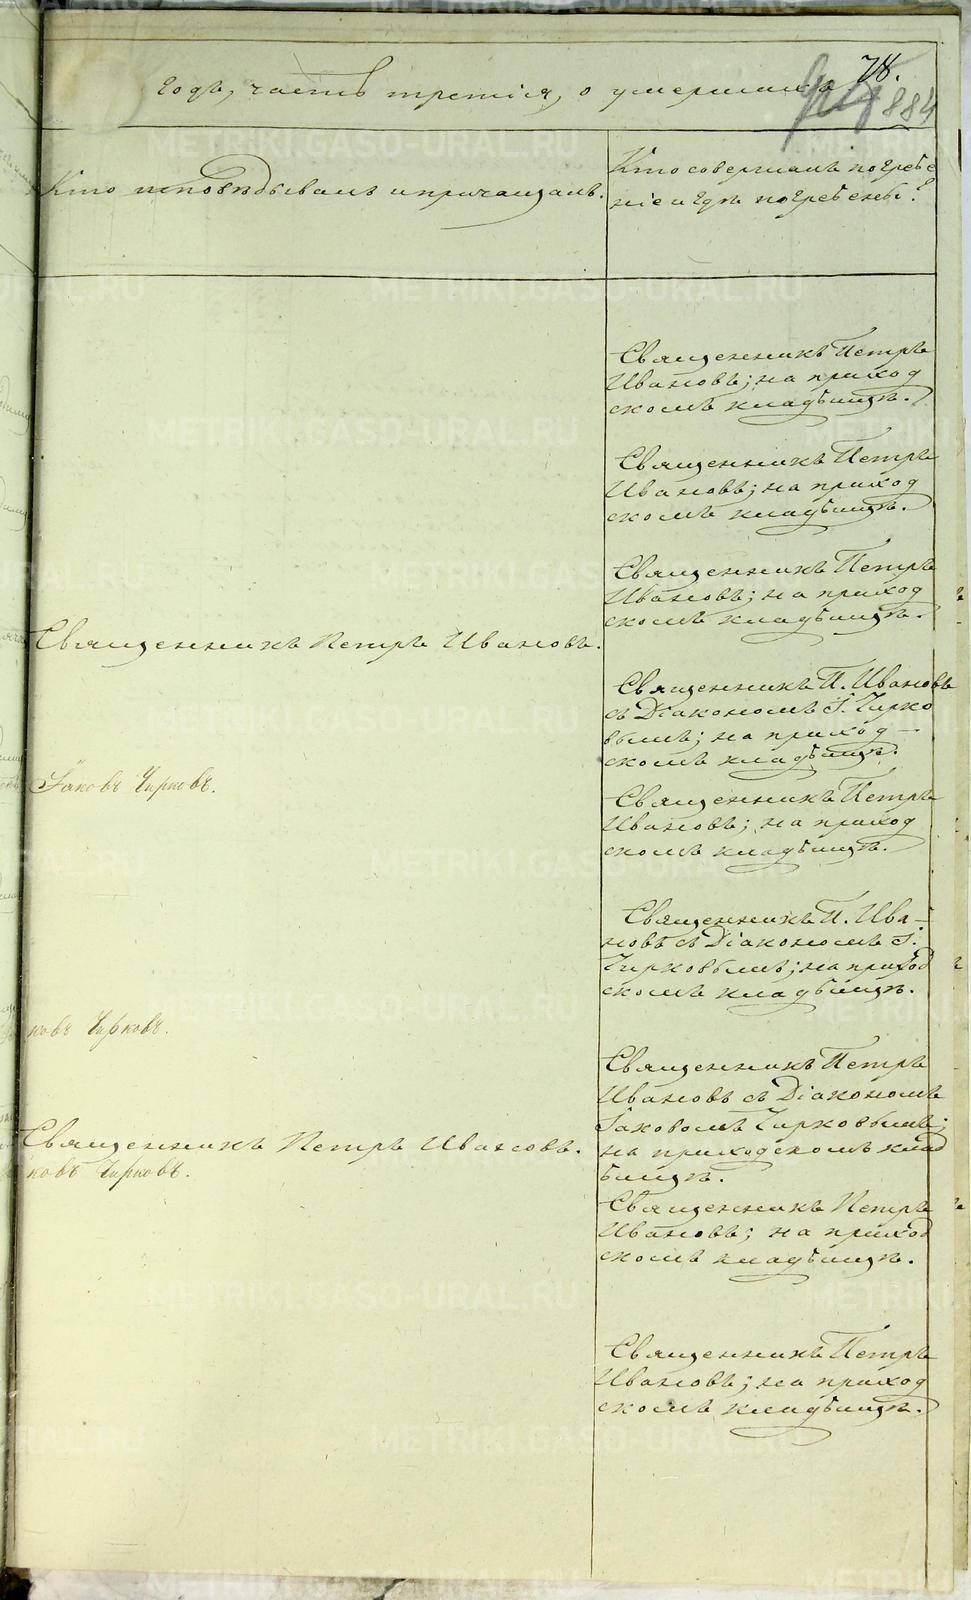 78.
года, часть третія, о умершихъ
884
Кто исповѣдывалъ и причащалъ.
Кто совершалъ погребе
ніе и гдѣ погребены?
Священникъ Петръ
Ивановъ; на приход
скомъ кладбищѣ.
Священникъ Петръ
Ивановъ; на приход
скомъ кладбищѣ.
Священникъ Петръ
Ивановъ; на приход
скомъ кладбищѣ.
Священникъ Петръ Ивановъ.
Священникъ П. Ивановъ
съ Діакономъ І. Чирко
вымъ; на приход-
скомъ кладбищѣ.
Іаковъ Чирковъ.
Священникъ Петръ
Ивановъ; на приход
скомъ кладбищѣ.
Священникъ П. Ива-
новъ съ Діакономъ І.
Чирковымъ; на приход
скомъ кладбищѣ.
ковъ Чирковъ.
Священникъ Петръ
Ивановъ съ Діакономъ
Іаковомъ Чирковымъ;
на приходскомъ клад
бищѣ.
Священникъ Петръ Ивановъ.
ковъ Чирковъ.
Священникъ Петръ
Ивановъ; на приход
скомъ кладбищѣ.
Священникъ Петръ
Ивановъ; на приход
скомъ кладбищѣ.
METRIKI.GASO-URAL.RU